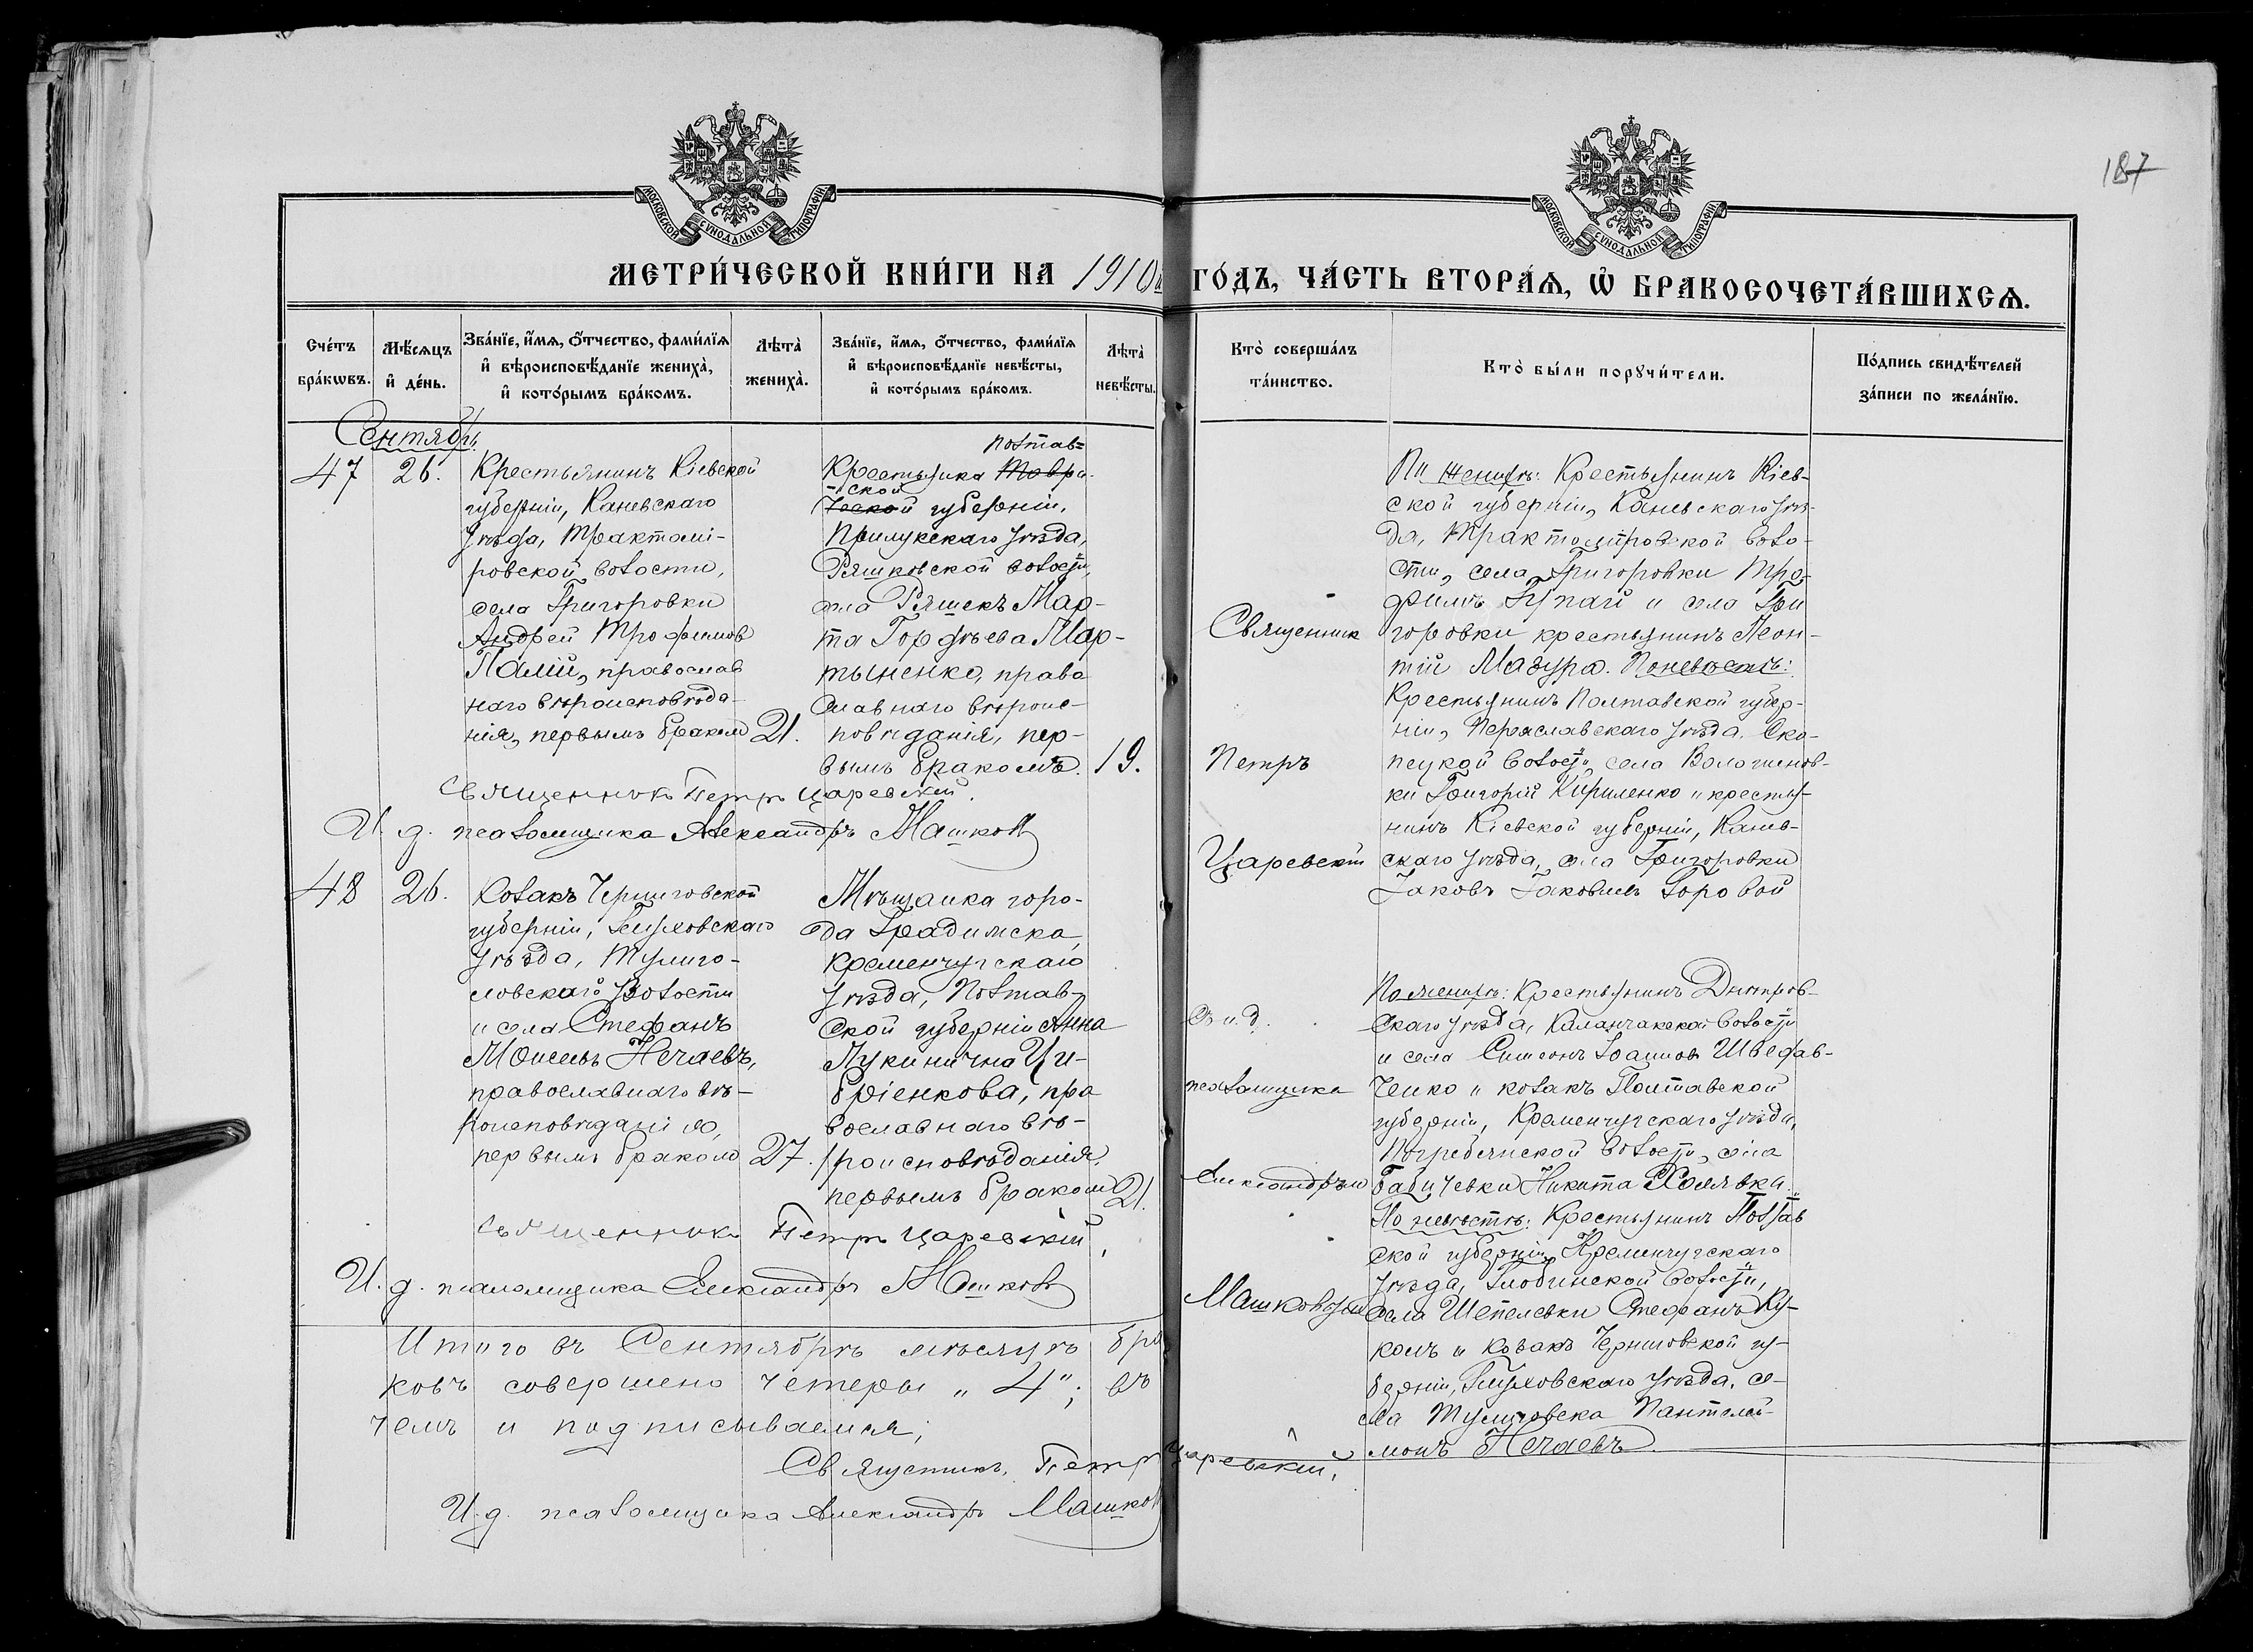 187
МОСКОВСКОЙ СУНОДАЛЬНОЙ ТИПОГРАФІИ
МОСКОВСКОЙ СУНОДАЛЬНОЙ ТИПОГРАФІИ
МЕТРИ́ЧЕСКОЙ КНИ́ГИ НА 1910й ГО́ДЪ, ЧА́СТЬ ВТОРА́Ѧ, Ѽ БРАКОСОЧЕТА́ВШИХСѦ.
Сче́тъ
бра́кѡвъ.
Мѣ́сѧцъ
и҆ де́нь.
Зва́нїе, и҆́мѧ, ѻ҆́тчество, фами́лїѧ
и҆ вѣроисповѣ́данїе жениха̀,
и҆ кото́рымъ бра́комъ.
Лѣта̀
жениха̀.
Зва́нїе, и҆́мѧ, ѻ҆́тчество, фами́лїѧ
и҆ вѣроисповѣ́данїе невѣ́сты,
и҆ кото́рымъ бра́комъ.
Лѣта̀
невѣ́сты.
Кто̀ соверша́лъ
та́инство.
Кто̀ бы́ли порꙋчи́тели.
По́дпись свидѣ́телей
за́писи по жела́нїю.
Сентябрь
47
26.
Крестьянинъ Кіевской
губерніи, Каневскаго
уѣзда, Трактомі-
ровской волости,
села Григоровки
Андрей Трофимов
Палій, православ
наго вѣроисповѣда-
нія, первымъ бракомъ
21.
Полтав=
Крестьянка Таври-
-ской
ческой губерніи,
Прилукскаго уѣзда,
Ряшковской волости,
села Ряшекъ Мар-
та Гордѣева Мар-
тыненко, право
славнаго вѣроис-
повѣданія, пер-
вымъ бракомъ.
19.
Священник
Петръ
Царевскій
По женихѣ: Крестьянинъ Кіев-
ской губерніи, Каневскаго уѣз-
да, Трактоміровской воло-
сти, села Григоровки Тро-
фимъ и села Гри
горовки крестьянинъ Леон-
тій Мазура. По невѣстѣ:
Крестьянинъ Полтавской губер-
ніи, Переяславскаго уѣзда,
волости, села
ки Григорій Кириленко и крестья-
нинъ Кіевской губерніи, Канев-
скаго уѣзда, села Григоровки
Іаковъ Іаковлевъ Горовой
Священникъ Петръ Царевскій.
И. д. псаломщика Александръ Машковъ
48
26.
Козакъ Черниговской
губерніи, Глуховскаго
уѣзда, Тулиго-
ловскаго волости
и села Стефанъ
Моисеевъ Нечаевъ,
православнаго вѣ-
роисповѣданія,
первымъ бракомъ
27.
Мѣщанка горо-
да Градижска,
Кременчугскаго
уѣзда, Полтав-
ской губерніи Анна
Лукинична Ци-
бріенкова, пра
вославнаго вѣ-
роисповѣданія,
первымъ бракомъ
21.
Съ и. д.
псаломщика
Александромъ
Машковымъ
По женихѣ: Крестьянинъ Днѣпров-
скаго уѣзда, Каланчакской волости
и села Симеонъ Іоанновъ
и козакъ Полтавской
губерніи, Кременчугскаго уѣзда,
волости, села
Бабичевки Никита Холявка.
По невѣстѣ: Крестьянинъ Полтав
ской губерніи, Кременчугскаго
уѣзда, Глобинской волости,
села Шепелевки Стефанъ Ку-
комъ и козакъ Черниговской гу-
берніи, Глуховскаго уѣзда, се-
ла Тулиговска Пантелей-
монъ Нечаевъ.
Священникъ Петръ Царевскій,
И. д. псаломщика Александръ Машковъ
Итого въ Сентябрѣ мѣсяцѣ бра
ковъ совершено четеры „4"; въ
чемъ и подписываемся;
Священникъ Петръ Царевскій,
И. д. псаломщика Александръ Машков